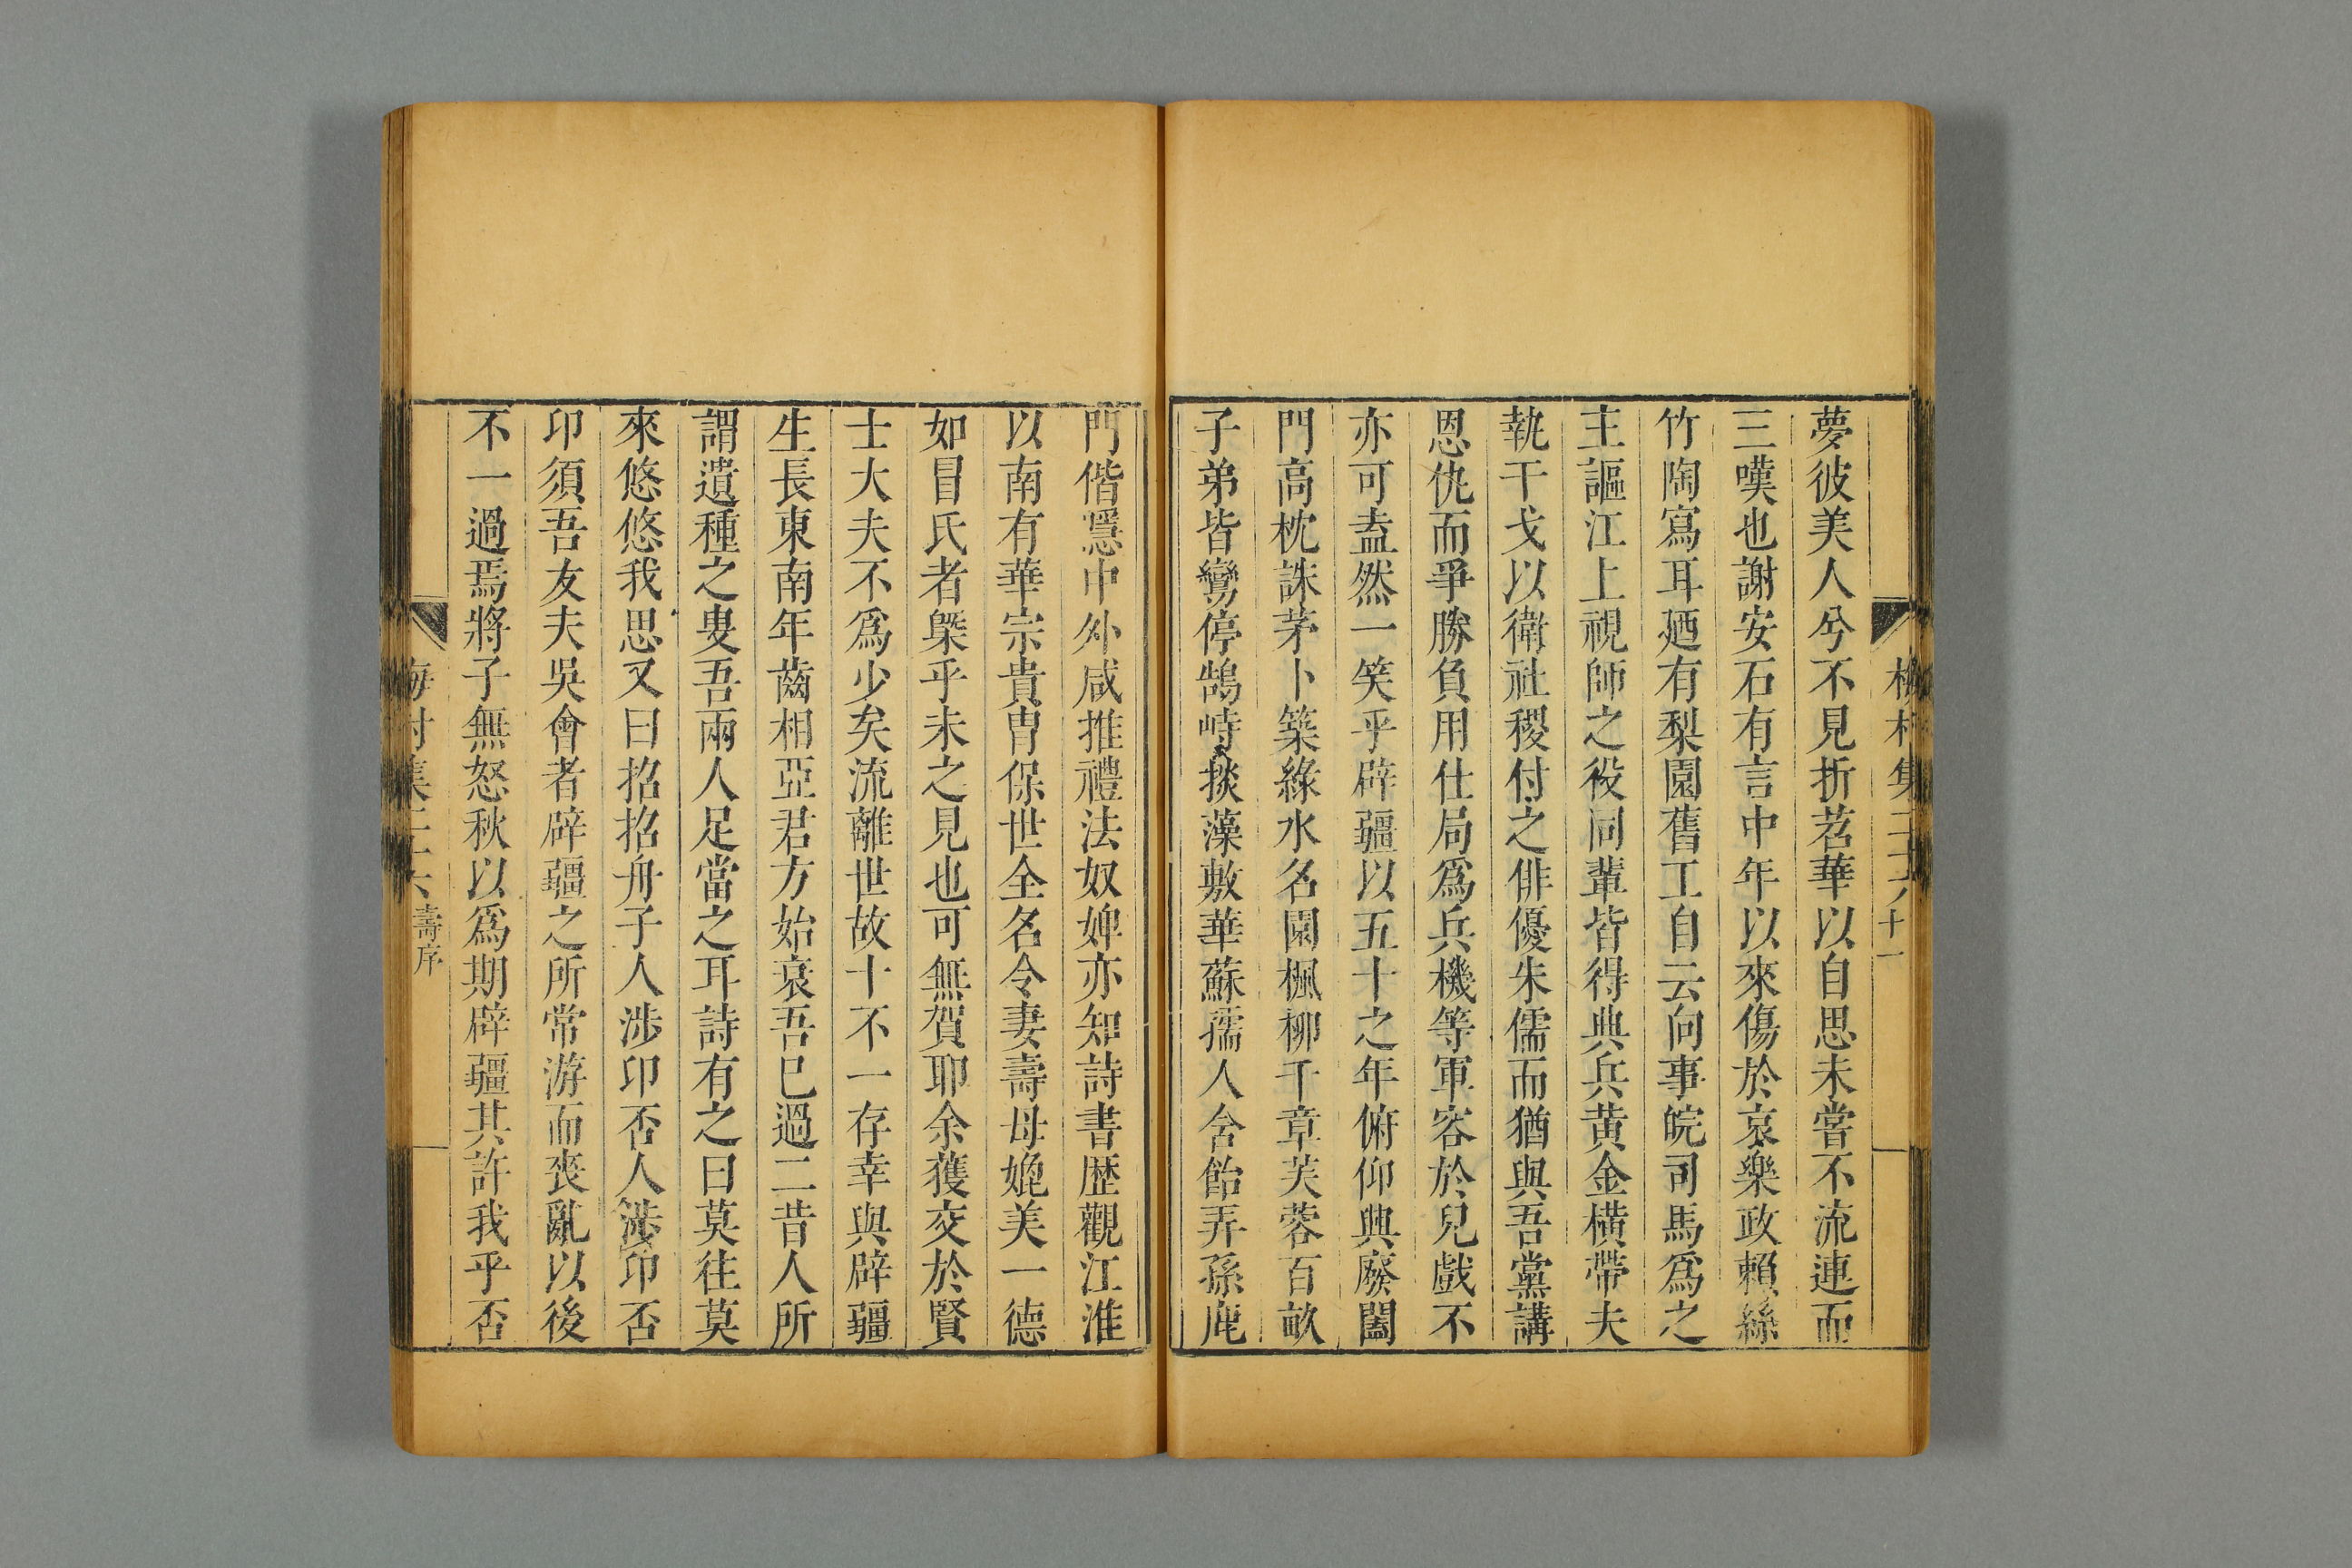 夢彼美人兮不見折若華以自思未嘗不流連而
三嘆也謝安石有言中年以來傷於哀樂政賴絲
竹陶寫耳廼有梨園舊工自云向事皖司馬爲之
主謳江上視師之役同輩皆得典兵黃金橫帶夫
執干戈以衛社稷付之俳優朱儒而猶與吾黨講
恩仇而爭勝負用仕局爲兵機等軍容於兒戲不
亦可盍然一笑乎辟疆以五十之年俯仰興廢闔
門高枕誅茅卜築綠水名園楓柳千章芙蓉百畝
子弟皆鸞停鵠峙掞藻敷華蘇孺人含飴弄孫鹿
門偕隱中外咸推禮法奴婢亦知詩書歷觀江淮
以南有華宗貴胄保世全名令妻壽母媲美一德
如冒氏者槩乎未之見也可無賀耶余獲交於賢
士大夫不爲少矣流離世故十不一存幸與辟疆
生長東南年齒相亞君方始衰吾已過二昔人所
謂遺種之叟吾兩人足當之耳詩有之曰莫往莫
來悠悠我思又曰招招舟子人涉卬否人涉卬否
卬須吾友夫吳會者辟疆之所常游而喪亂以後
不一過焉將子無怒秋以爲期辟疆其許我乎否
梅村集 十一
梅村集 壽序